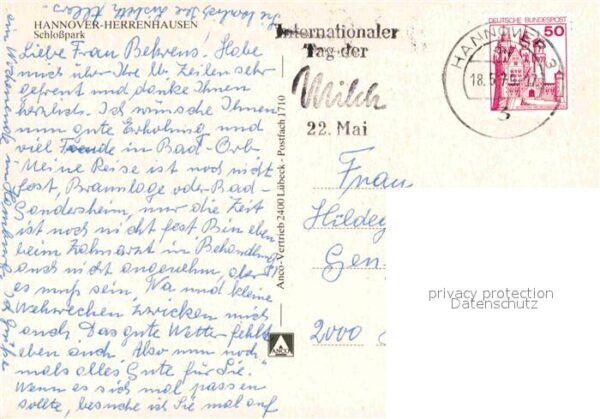 HANNOVER-HERRENHAUSEN
Schloßpark
Liebe Frau Behrens! Habe
mich über Ihre lb. Zeilen sehr
gefreut und danke Ihnen
herzlich. Ich wünsche Ihnen
nun gute Erholung und
viel Freude in Bad-Orb
Meine Reise ist noch nicht
fest, Braunlage oder Bad-
Gandersheim, nur die Zeit
ist noch nicht fest Bin eben
beim Zahnarzt in Behandlung
auch nicht angenehm, aber
es muß sein. Na und kleine
Wehwechen zwicken mich
auch. Das gute Wetter fehlt
eben auch. Also nun noch-
mals alles Gute für Sie.
Wenn es sich mal passen
sollte, besuche ich Sie mal auf
am Wochenende
Anco-Vertrieb 2400 Lübeck - Postfach 1710
ANCO
Internationaler
Tag der
Milch
22. Mai
HANNOVER 3
18.5.79
3
DEUTSCHE BUNDESPOST
50
Frau
Hildeg
Gen
2000
privacy protection
Datenschutz